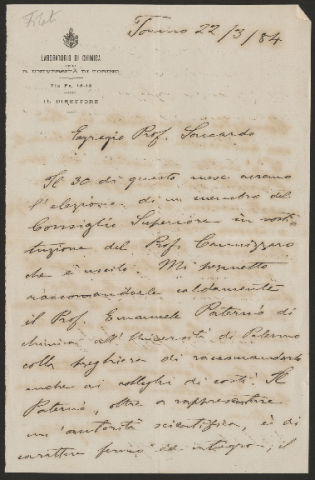 Fileti
Torino 22/3/84
LABORATORIO DI CHIMICA
R. UNIVERSITÀ DI TORINO
Via Po, 16-18
IL DIRETTORE
Egregio Prof. Saccardo
Il 30 di questo mese avremo
l'elezione di un membro del
Consiglio Superiore in sosti
tuzione del Prof. Cannizzaro
che è uscito. Mi permetto
raccomandarle caldamente
il Prof. Emanuele Paternò di
chimica all'Università di Palermo
colla preghiera di raccomandarlo
anche ai colleghi di costì. Il
Paternò, oltre a rappresentare
un'autorità scientifica, è di
carattere fermo ed integro; il